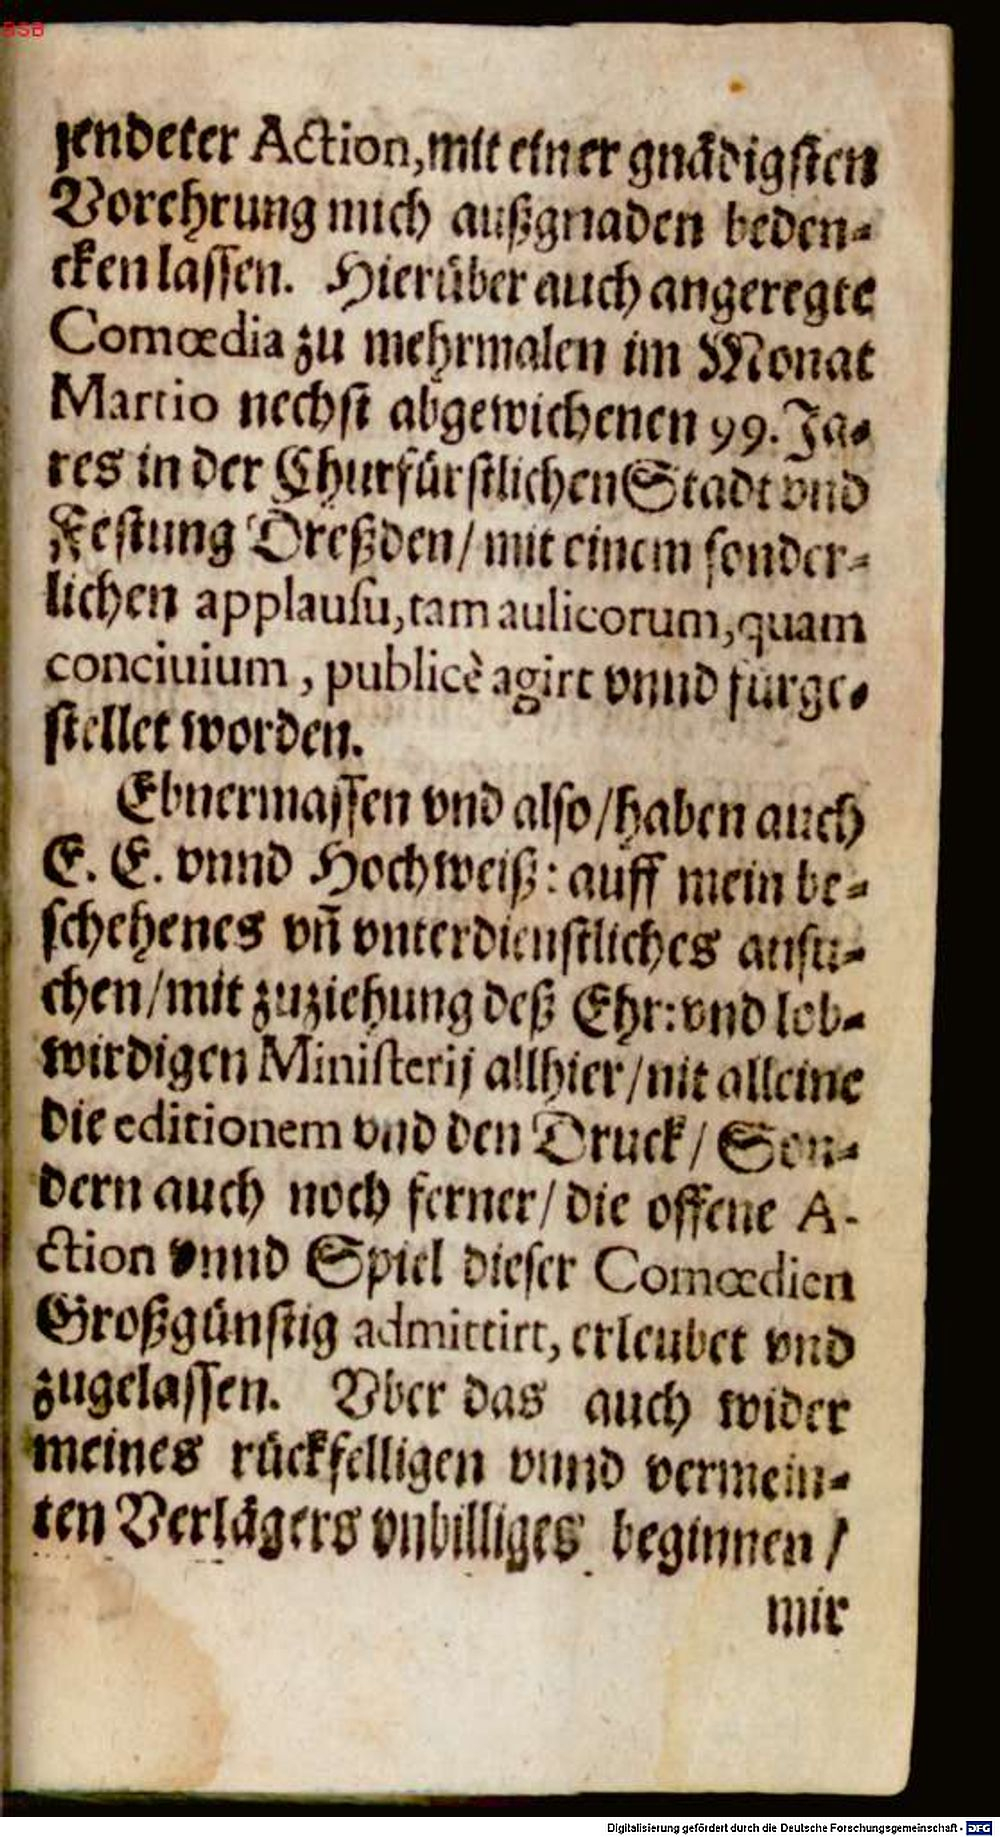 BSB
jendeter Action, mit einer gnådigsten
Vorehrung mich außgnaden beden-
cken lassen. Hierůber auch angeregte
Comœdia zu mehrmalen im Monat
Martio nechst abgewichenen 99. Ja-
res in der Churfürstlichen Stadt vnd
Festung Dreßden/ mit einem sonder-
lichen applausu, tam aulicorum, quam
conciuium, publicè agirt vnnd fürge-
stellet worden.
Ebnermassen vnd also/ haben auch
E. E. vnnd Hochweiß: auff mein be-
schehenes vñ vnterdienstliches ansu-
chen/ mit zuziehung deß Ehr: vnd lob-
wirdigen Ministerij allhier/ nit alleine
die editionem vnd den Druck/ Son-
dern auch noch ferner/ die offene A-
ction vnnd Spiel dieser Comœdien
Großgünstig admittirt, erleubet vnd
zugelassen. Vber das auch wider
meines rückfelligen vnnd vermein-
ten Verlågers vnbilliges beginnen/
mir
Digitalisierung gefördert durch die Deutsche Forschungsgemeinschaft - DFG